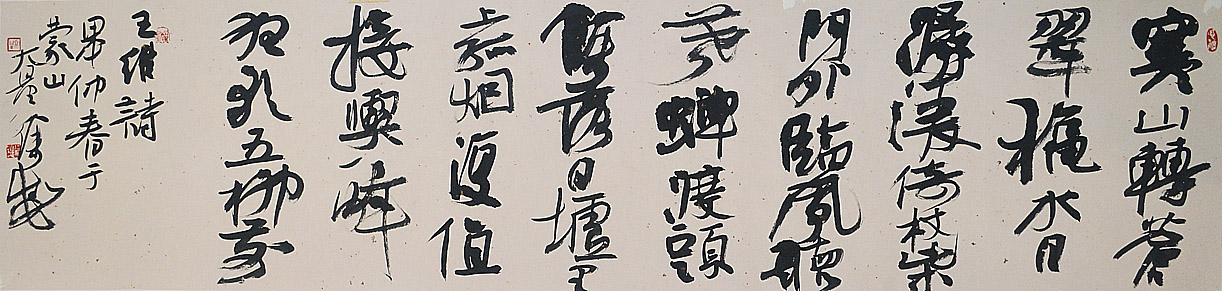 寒山轉蒼
翠秋水日
潺湲倚杖柴
門外臨風聽
暮蟬渡頭
餘落日墟里
上孤烟復值
接輿醉
狂歌五柳前
王維詩
仲春于
蒙山